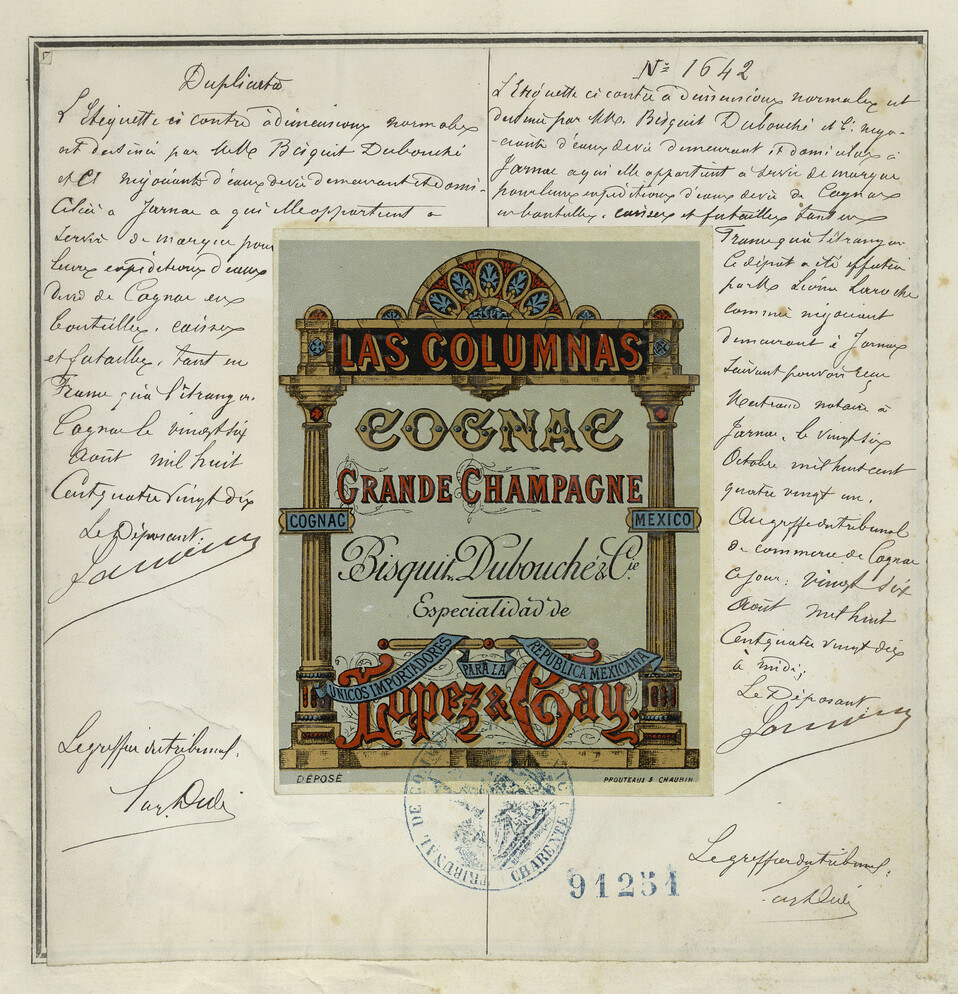 Duplicata
L'Etiquette ci contre à dimensions normales
est destinée par MM. Bisquit Dubouché
et Cie négociants d'eaux de vie demeurant et domi-
ciliés à Jarnac a qui elle appartient a
servir de marque pour
leurs expéditions d'eaux
de vie de Cognac en
bouteilles, caisses
et futailles, tant en
France qu'à l'étranger.
Cognac le vingt six
Août mil huit
Cent quatre vingt dix
Le Déposant:
Le greffier du tribunal.
No 1642
L'Etiquette ci contre a dimensions normales est
destinée par MM. Bisquit Dubouché et Cie négo-
-ciants d'eaux de vie demeurant et domiciliés à
Jarnac a qui elle appartient a servir de marque
pour leurs expéditions d'eaux de vie de Cognac
en bouteilles, caisses et futailles tant en
France qu'à l'étranger.
Ce dépôt a été effectué
par M. Léonce Laroche
commis négociant
demeurant à Jarnac
suivant pouvoir reçu
notaire à
Jarnac, le vingt six
Octobre mil huit cent
quatre vingt un.
Au greffe du tribunal
de commerce de Cognac
ce jour: vingt six
Août mil huit
Cent quatre vingt dix
à midi.
Le Déposant
Le greffier du tribunal.
LAS COLUMNAS
COGNAC
GRANDE CHAMPAGNE
COGNAC
MEXICO
Bisquit, Dubouché & Cie.
Especialidad de
UNICOS IMPORTADORES
PARA LA
REPUBLICA MEXICANA
Lopez & Gay.
DÉPOSÉ
PROUTEAUX & CHAUBIN
TRIBUNAL DE
CHARENTE
91251